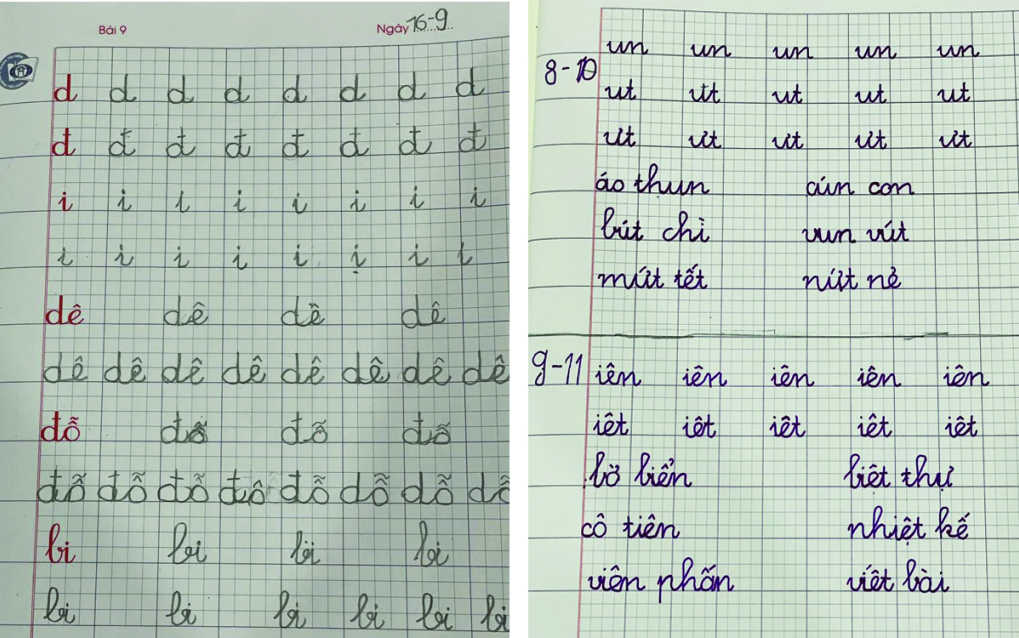 Bài 9 Ngày 16-9
d d d d d d d d
đ đ đ đ đ đ đ đ
i i i i i i i i
i i i i i i i i
dê dê dê dê
dê dê dê dê dê dê dê dê
đỗ đỗ đỗ đỗ
đỗ đỗ đỗ đỗ đỗ đỗ đỗ đỗ
bi bi bi bi
bi bi bi bi bi bi
un un un un un
8-10
ut ut ut ut ut
ưt ưt ưt ưt ưt
áo thun cún con
bút chì vun vút
mứt tết nứt nẻ
9-11 iên iên iên iên iên
iêt iêt iêt iêt iêt
bờ biển biệt thự
cô tiên nhiệt kế
viên phấn viết bài